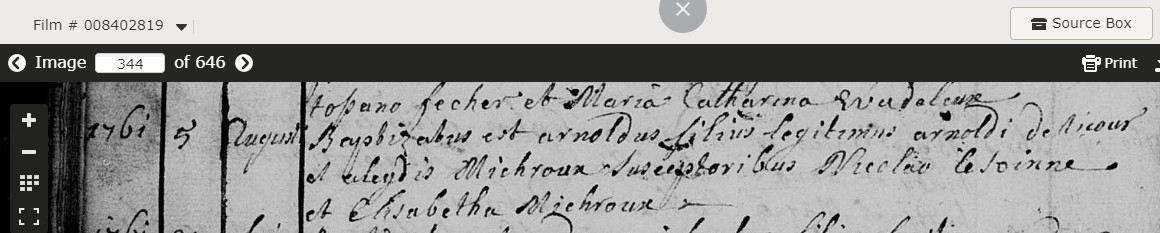 Film # 008402819
Source Box
Image 344 of 646
Print
fecher et Maria Catharina
1761 5 Augusti Baptizatus est arnoldus filius legitimus arnoldi
et aleydis Michroux Susceptoribus Nicolao lesoinne
et Elisabetha Michroux